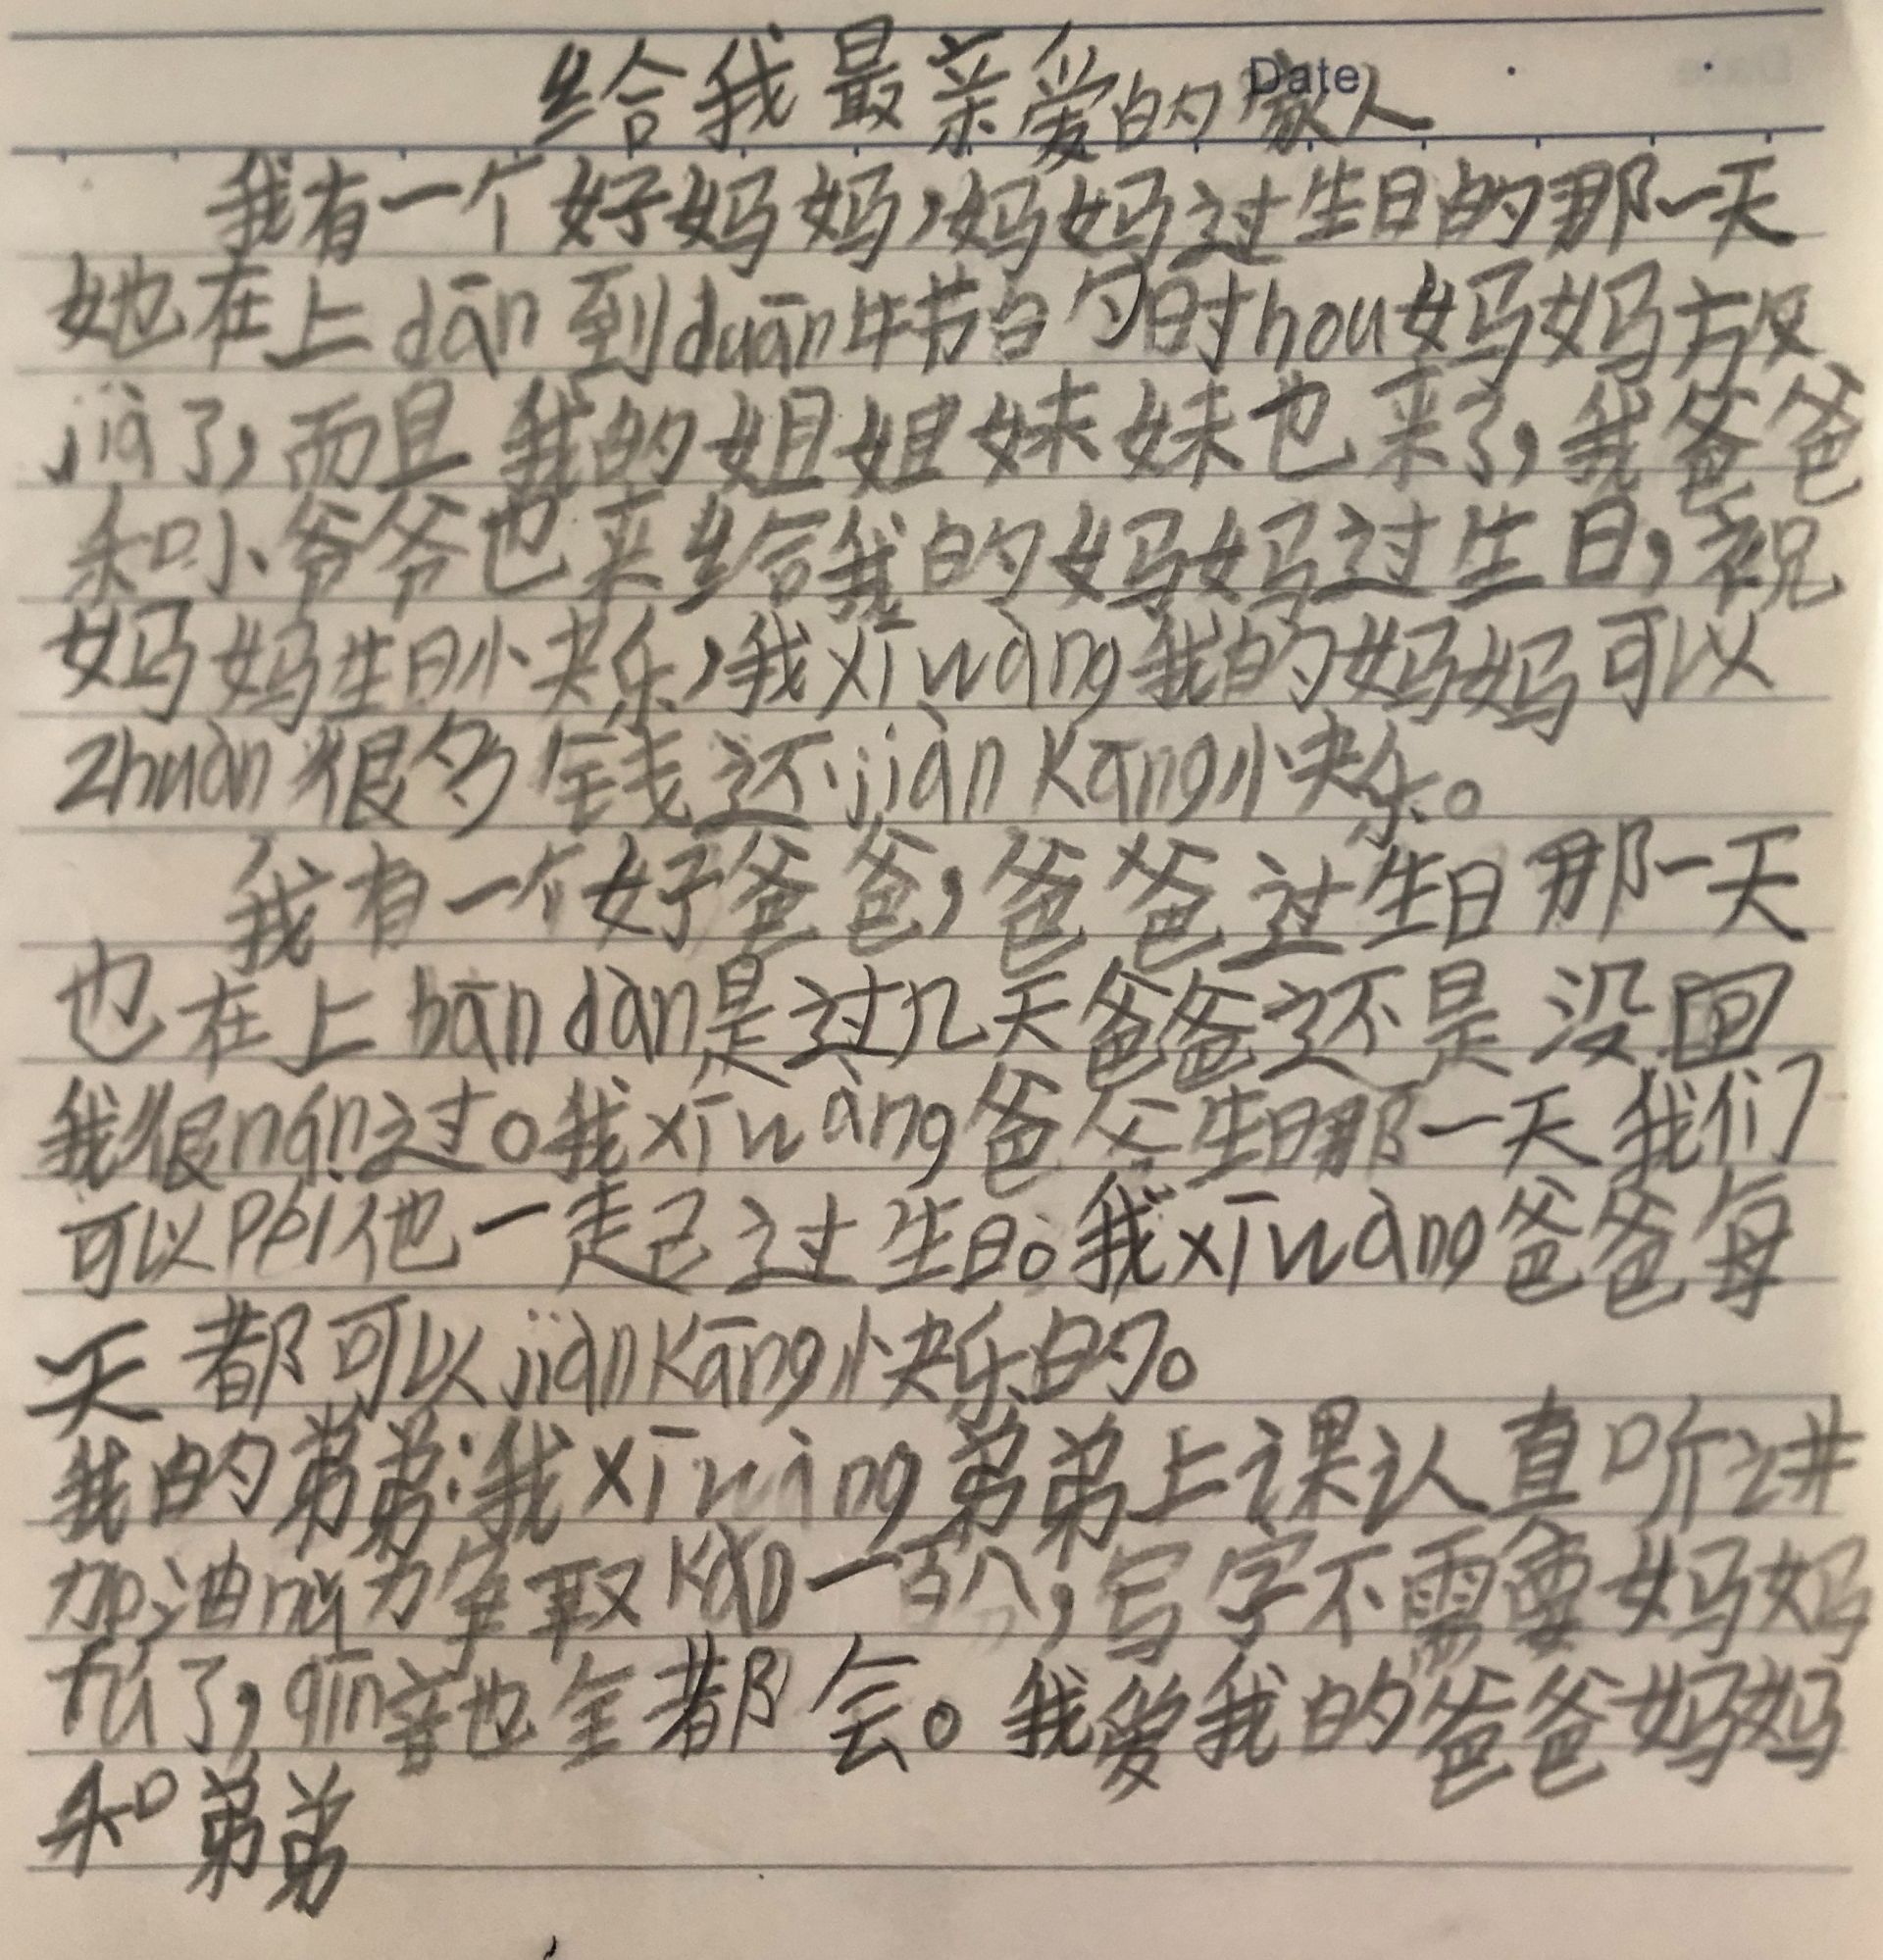 Date
给我最亲爱的家人
我有一个好妈妈，妈妈过生日的那一天
她在上dān到duān午节的时hou妈妈放
jià了，而且我的姐姐妹妹也来了，我爸爸
和小爷爷也来给我的妈妈过生日，祝
妈妈生日快乐，我xī wàng我的妈妈可以
zhuàn很多钱还jiàn kāng快乐。
我有一个好爸爸，爸爸过生日那一天
也在上bān dàn是过几天爸爸还是没回
我很nán过。我xī wàng爸父生日那一天我们
可以péi他一起过生日。我xī wàng爸爸每
天都可以jiàn kāng快乐的。
我的弟弟：我xī wàng弟弟上课认直听讲
加油nǔ力争取kǎo一百八，写字不需要妈妈
fú了，qīn音也全都会。我爱我的爸爸妈妈
和弟弟